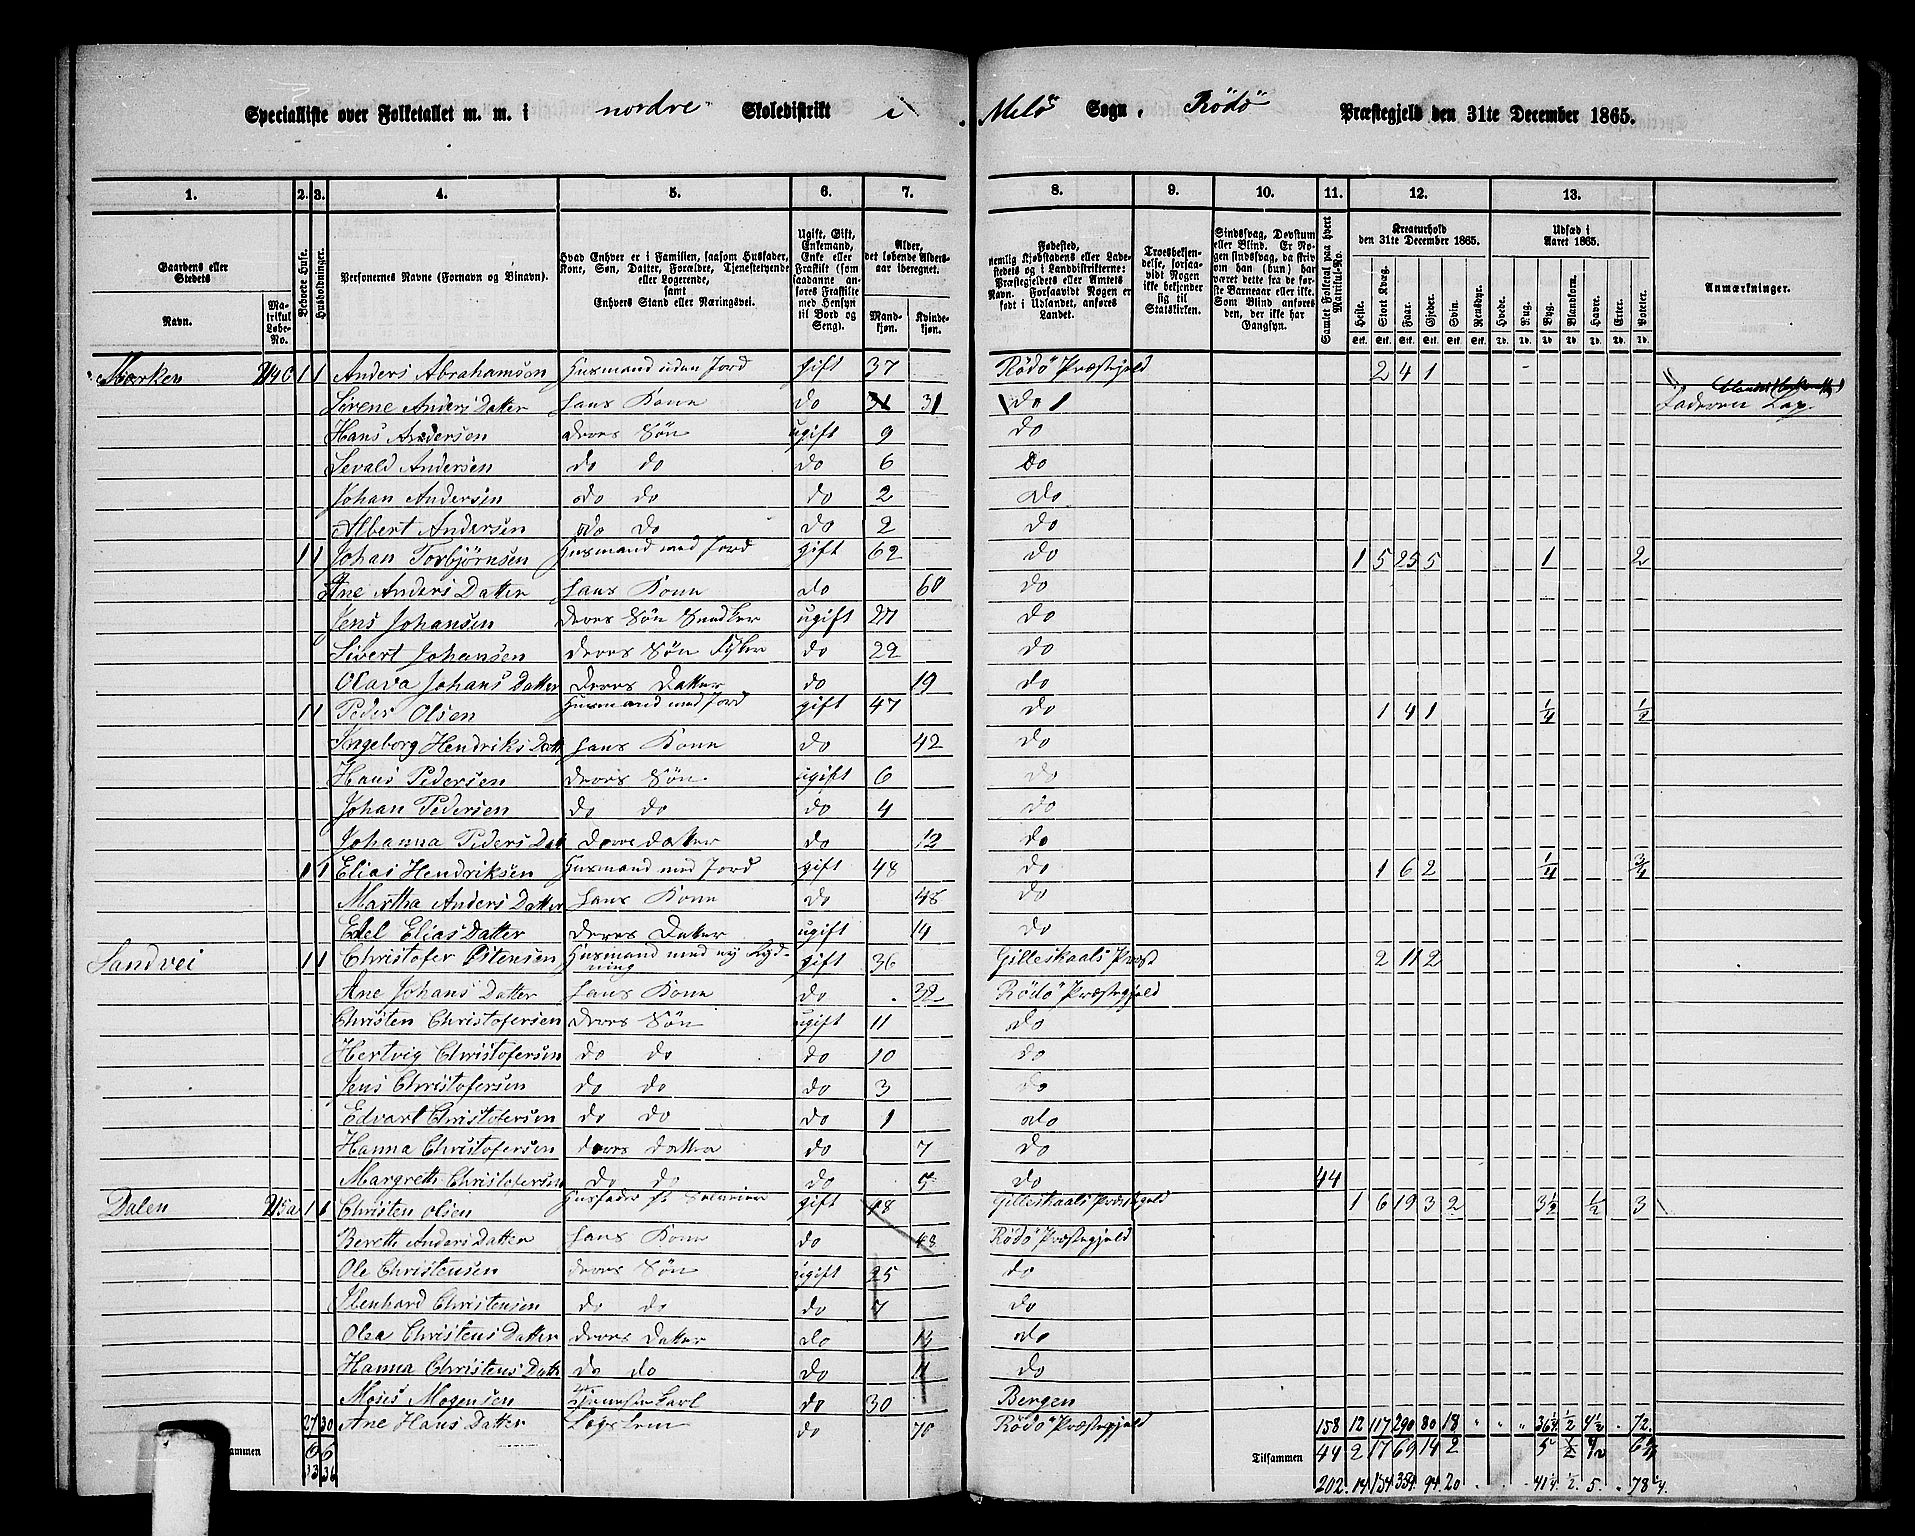 Specialliste over Folketallet m. m. i nordre Skoledistrikt i Melö Sogn, Rödö Præstegjeld den 31te December 1865.
1. 2. 3. 4. 5. 6. 7. 8. 9. 10. 11. 12. 13.
Gaardens eller Stedets Navn. Matrikul Løbe-No. Beboede Huse. Husholdninger. Personernes Navne (Fornavn og Tilnavn). Hvad Enhver er i Familien, saasom Husfader, Kone, Søn, Datter, Forældre, Tjenestetyende eller Logerende, samt Enhvers Stand eller Næringsvei. Ugift, Gift, Enkemand, Enke eller Fraskilt (som saadanne anføres Fraskilte med Hensyn til Bord og Seng). Alder, det løbende Alders-aar iberegnet. Mandkjøn. Kvindekjøn. Fødested, nemlig Kjøbstadens eller Ladestedets og i Landdistrikterne: Præstegjeldets eller Amtets Navn. Forsaavidt Nogen er født i Udlandet, anføres Landet. Troesbekjendelse, forsaavidt Nogen ikke bekjender sig til Statskirken. Sindssvag, Døvstum eller Blind. Er Nogen sindssvag, da skrives om han (hun) har været dette fra de første Barneaar eller ikke. Som Blind anføres den, der ikke har Gangsyn. Samlet Folketal paa hvert Matrikul-No. Kreaturhold den 31te December 1865. Heste. Stort Kvæg. Faar. Gjeder. Svin. Rensdyr. Udsæd i Aaret 1865. Hvede. Rug. Byg. Blandkorn. Havre. Erter. Poteter. Anmærkninger.
246 1 1 Anders Abrahamsen Husmand uden Jord gift 37 Rödö Præstegjeld 2 4 1
Sirene Anders Datter Hans Kone do 31 do
Hans Andersen deres Søn ugift 9 do
Sevald Andersen do do do 6 do
Johan Andersen do do do 2 do
Albert Andersen do do do 2 do
1 1 Johan Torbjørnsen Husmand med Jord gift 62 do 1 5 25 5 1 2
Ane Anders Datter Hans Kone do 60 do
Jens Johansen deres Søn Snedker ugift 27 do
Sivert Johansen deres Søn Fisker do 22 do
Olava Johans Datter deres Datter do 19 do
1 1 Peder Olsen Husmand med Jord gift 47 do 1 4 1 1/4 1/2
Ingeborg Hendriks Datt Hans Kone do 42 do
Hans Pedersen deres Søn ugift 6 do
Johan Pedersen do do do 4 do
Johanna Peders Dat deres datter do 12 do
1 1 Elias Hendriksen Husmand med Jord gift 48 do 1 6 2 1/4 3/4
Martha Anders Datter Hans Kone do 48 do
Edel Elias Datter deres Datter ugift 14 do
Sandvei 1 1 Christofer Ostensen Husmand med ny Rydning gift 36 Gilleskaals Præst 2 11 2
Ane Johans Datter Hans Kone do 32 Rödö Præstegjeld
Christen Christofersen deres Søn ugift 11 do
Hertvig Christofersen do do do 10 do
Jens Christofersen do do do 3 do
Edvart Christofersen do do do 1 do
Hanna Christofersen deres datter do 7 do
Margreth Christofersen do do do 5 do 44
Dalen 215a 1 1 Christen Olsen Husfader gift 48 Gilleskaals Præstegjeld 1 6 19 3 2 3 1/2 1/2 3
Bereth Anders Datter Hans Kone do 48 Rödö Præstegjeld
Ole Christensen deres Søn ugift 25 do
Menhard Christensen do do do 7 do
Olea Christens Datter deres Datter do 14 do
Hanna Christens Datt do do do 11 do
Moses Mogensen Tjenestekarl do 30 Bergen
27 30 Ane Hans Datter Lægslem do 70 Rödö Præstegjeld 158 12 117 290 80 18 " " " 36 1/4 1/2 4 1/2 . 72
Tilsammen 6 6 Tilsammen 44 2 17 69 14 2 5
33 36 202 14 134 359 94 20 41 1/4 1/2 5 . 78 1/4